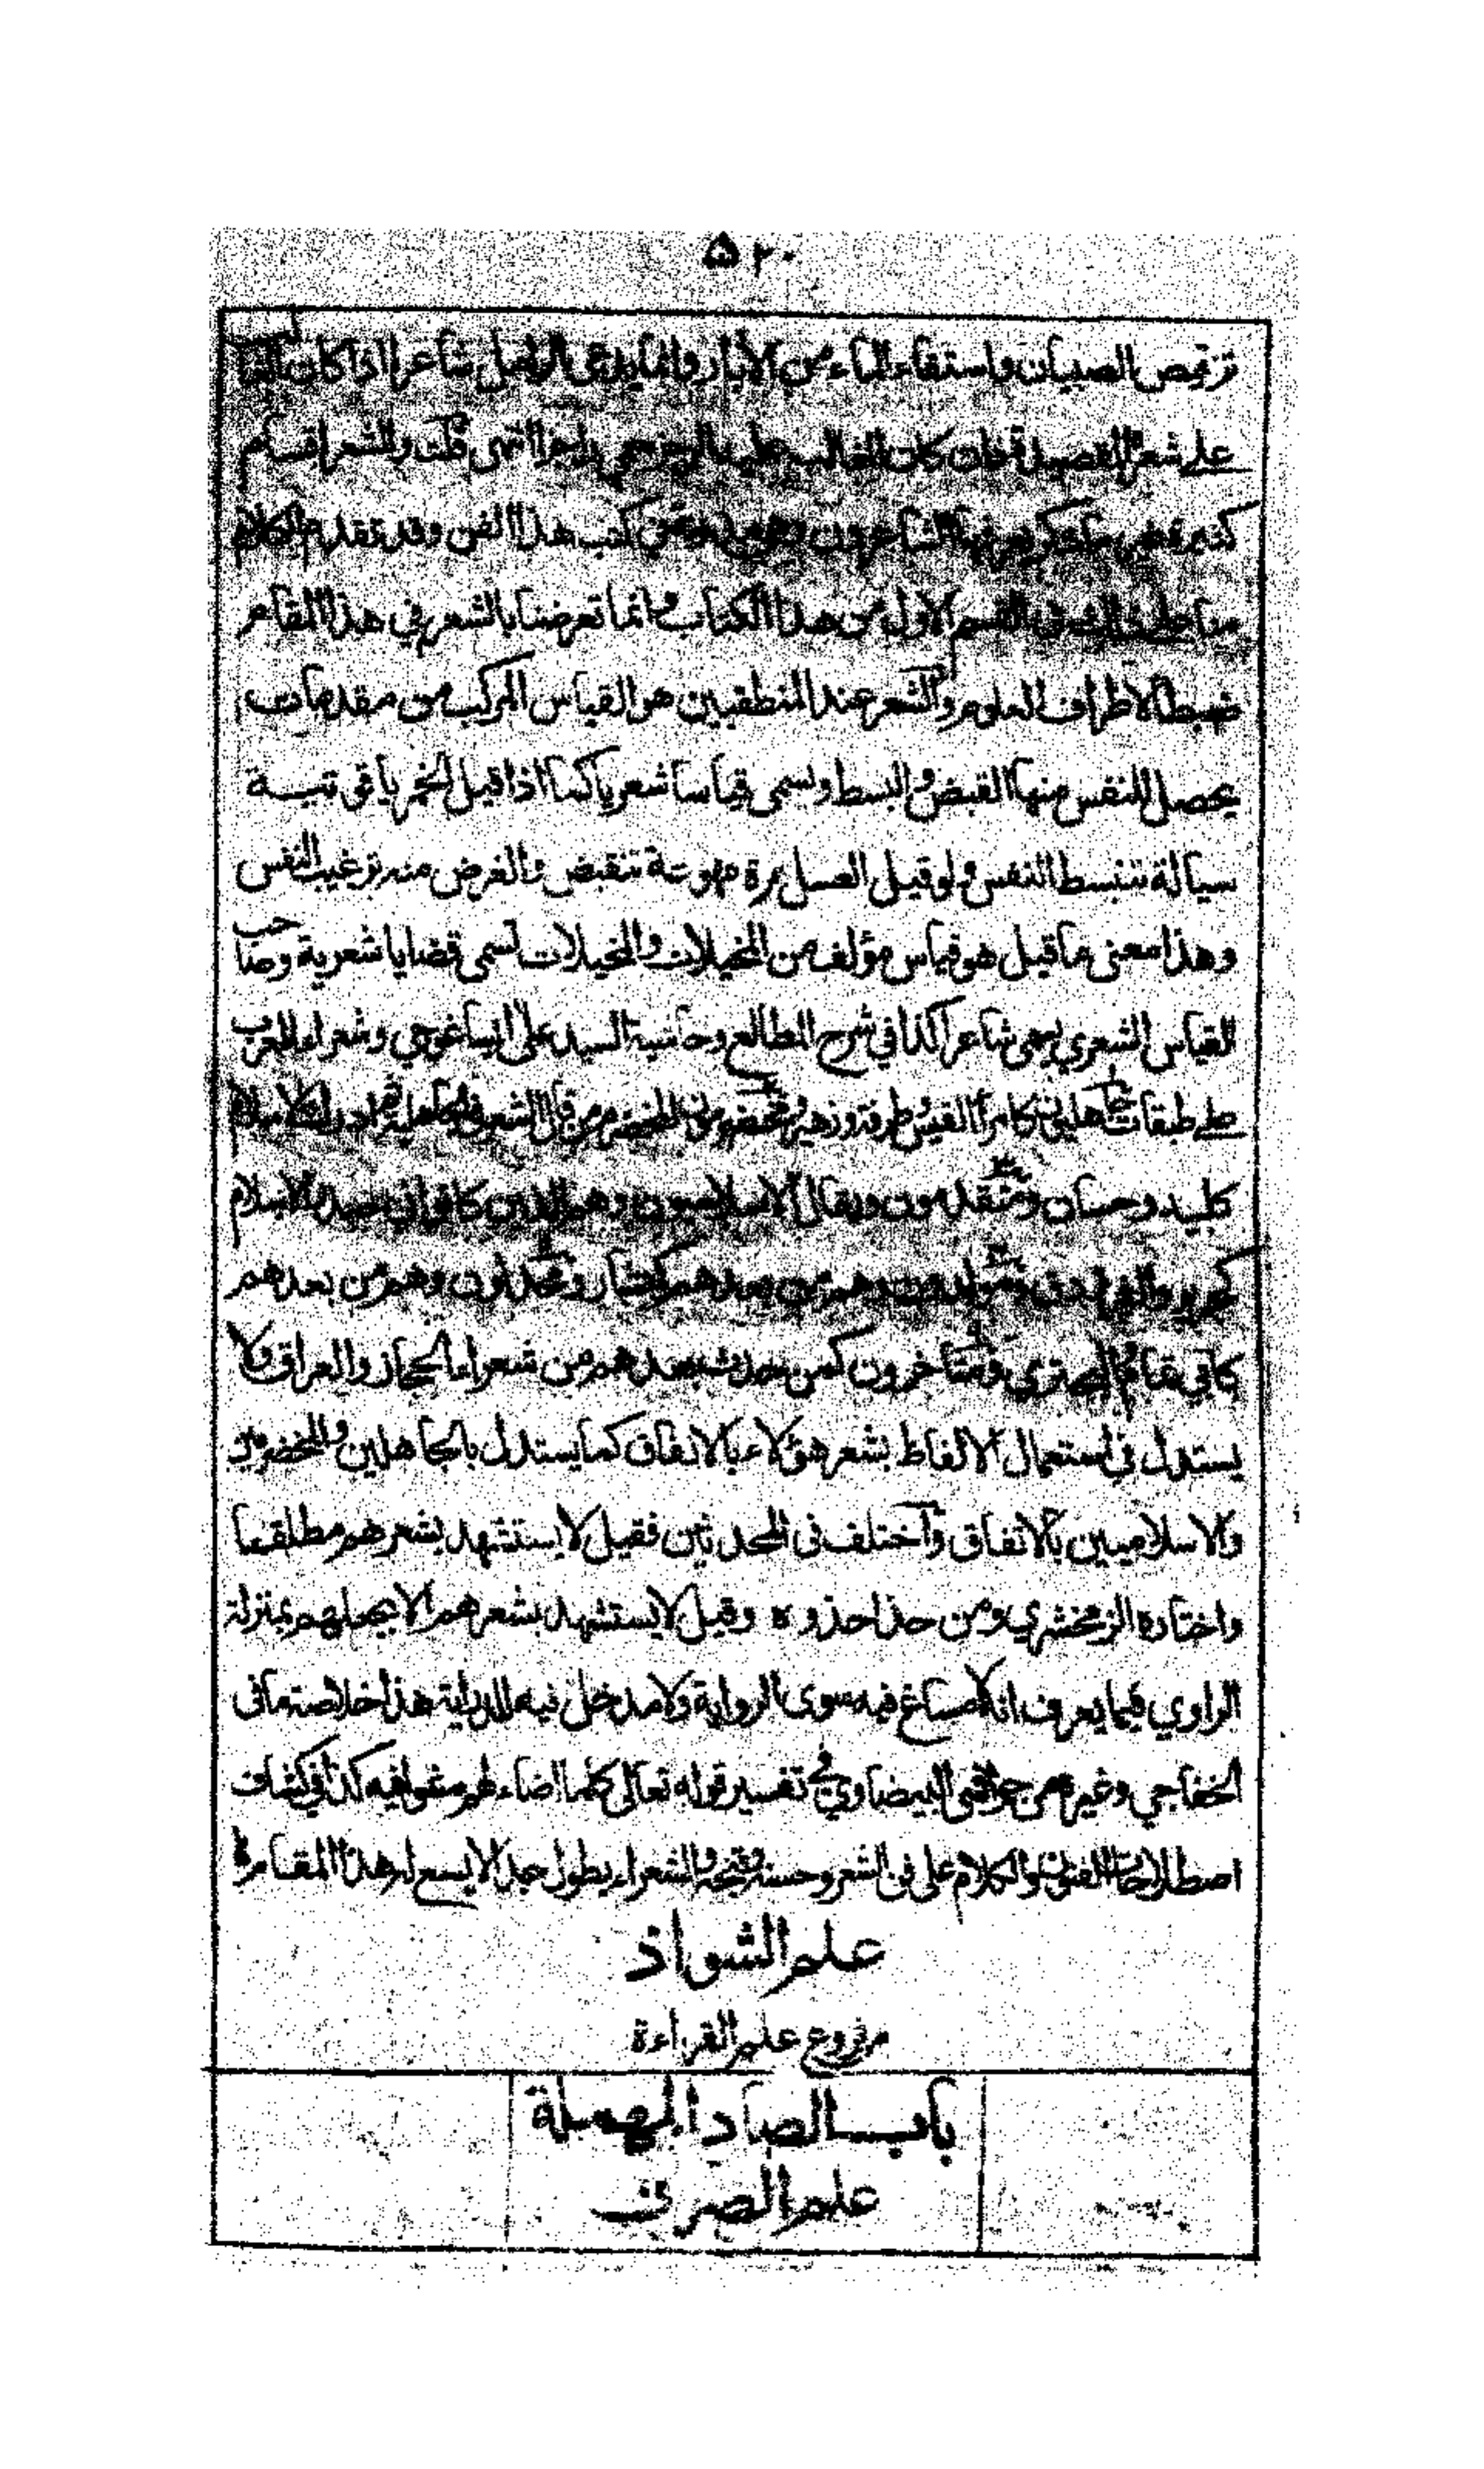 ٥٢٠
ترقيص الصبيان واستقاء الماء من الآبار وانما يدعى الراجل شاعرا اذا كان الغالب
على شعره القصيد فان كان الغالب عليه الرجز سمي راجزا انتهى قلت والشعر اقسام
كثيرة هذا الفن وقد تقدم الكلام
منا على ذلك في القسم الاول من هذا الكتاب وانما تعرضنا بالشعر في هذا المقام
ضبطا لاطراف العلوم والشعر عند المنطقيين هو القياس المركب من مقدمات
يحصل للنفس منها القبض والبسط ويسمى قياسا شعريا كما اذا قيل الخمر ياقوتية
سيالة تنبسط النفس ولو قيل العسل مرة مهوعة تنقبض والغرض منه ترغيب النفس
وهذا معنى ما قيل هو قياس مؤلف من المخيلات والمخيلات تسمى قضايا شعرية وصاحب
القياس الشعري يسمى شاعرا كذا في شرح المطالع وحاشية السيد على ايساغوجي وشعراء العرب
على طبقات جاهليون كامرء القيس وطرفة وزهير ومخضرمون المخضرم من قال الشعر في الجاهلية ثم ادرك الاسلام
كلبيد وحسان ومتقدمون ويقال الاسلاميون وهم الذين كانوا في صدر الاسلام
كجرير والفرزدق ومولدون وهم من بعدهم كبشار ومحدثون وهم من بعدهم
كابي تمام والبحتري ومتاخرون كمن حدث بعدهم من شعراء الحجاز والعراق ولا
يستدل في استعمال الالفاظ بشعر هؤلاء بالاتفاق كما يستدل بالجاهلين والمخضرمين
والاسلاميين بالاتفاق واختلف في المحدثين فقيل لا يستشهد بشعرهم مطلقا
واختاره الزمخشري ومن حذا حذوه وقيل لا يستشهد بشعرهم الا بجعلهم بمنزلة
الراوي فيما يعرف انه لا مساغ فيه سوى الرواية ولا مدخل فيه للدراية هذا خلاصة ما في
الخفاجي وغيره من حواشي البيضاوي في تفسير قوله تعالى كلما اضاء لهم مشوا فيه كذا في كشاف
اصطلاحات الفنون والكلام على فن الشعر وحسنه وقبحه والشعراء يطول جدا لا يسع له هذا المقام
علم الشواذ
من فروع علم القراءة
باب الصاد المهملة
علم الصرف